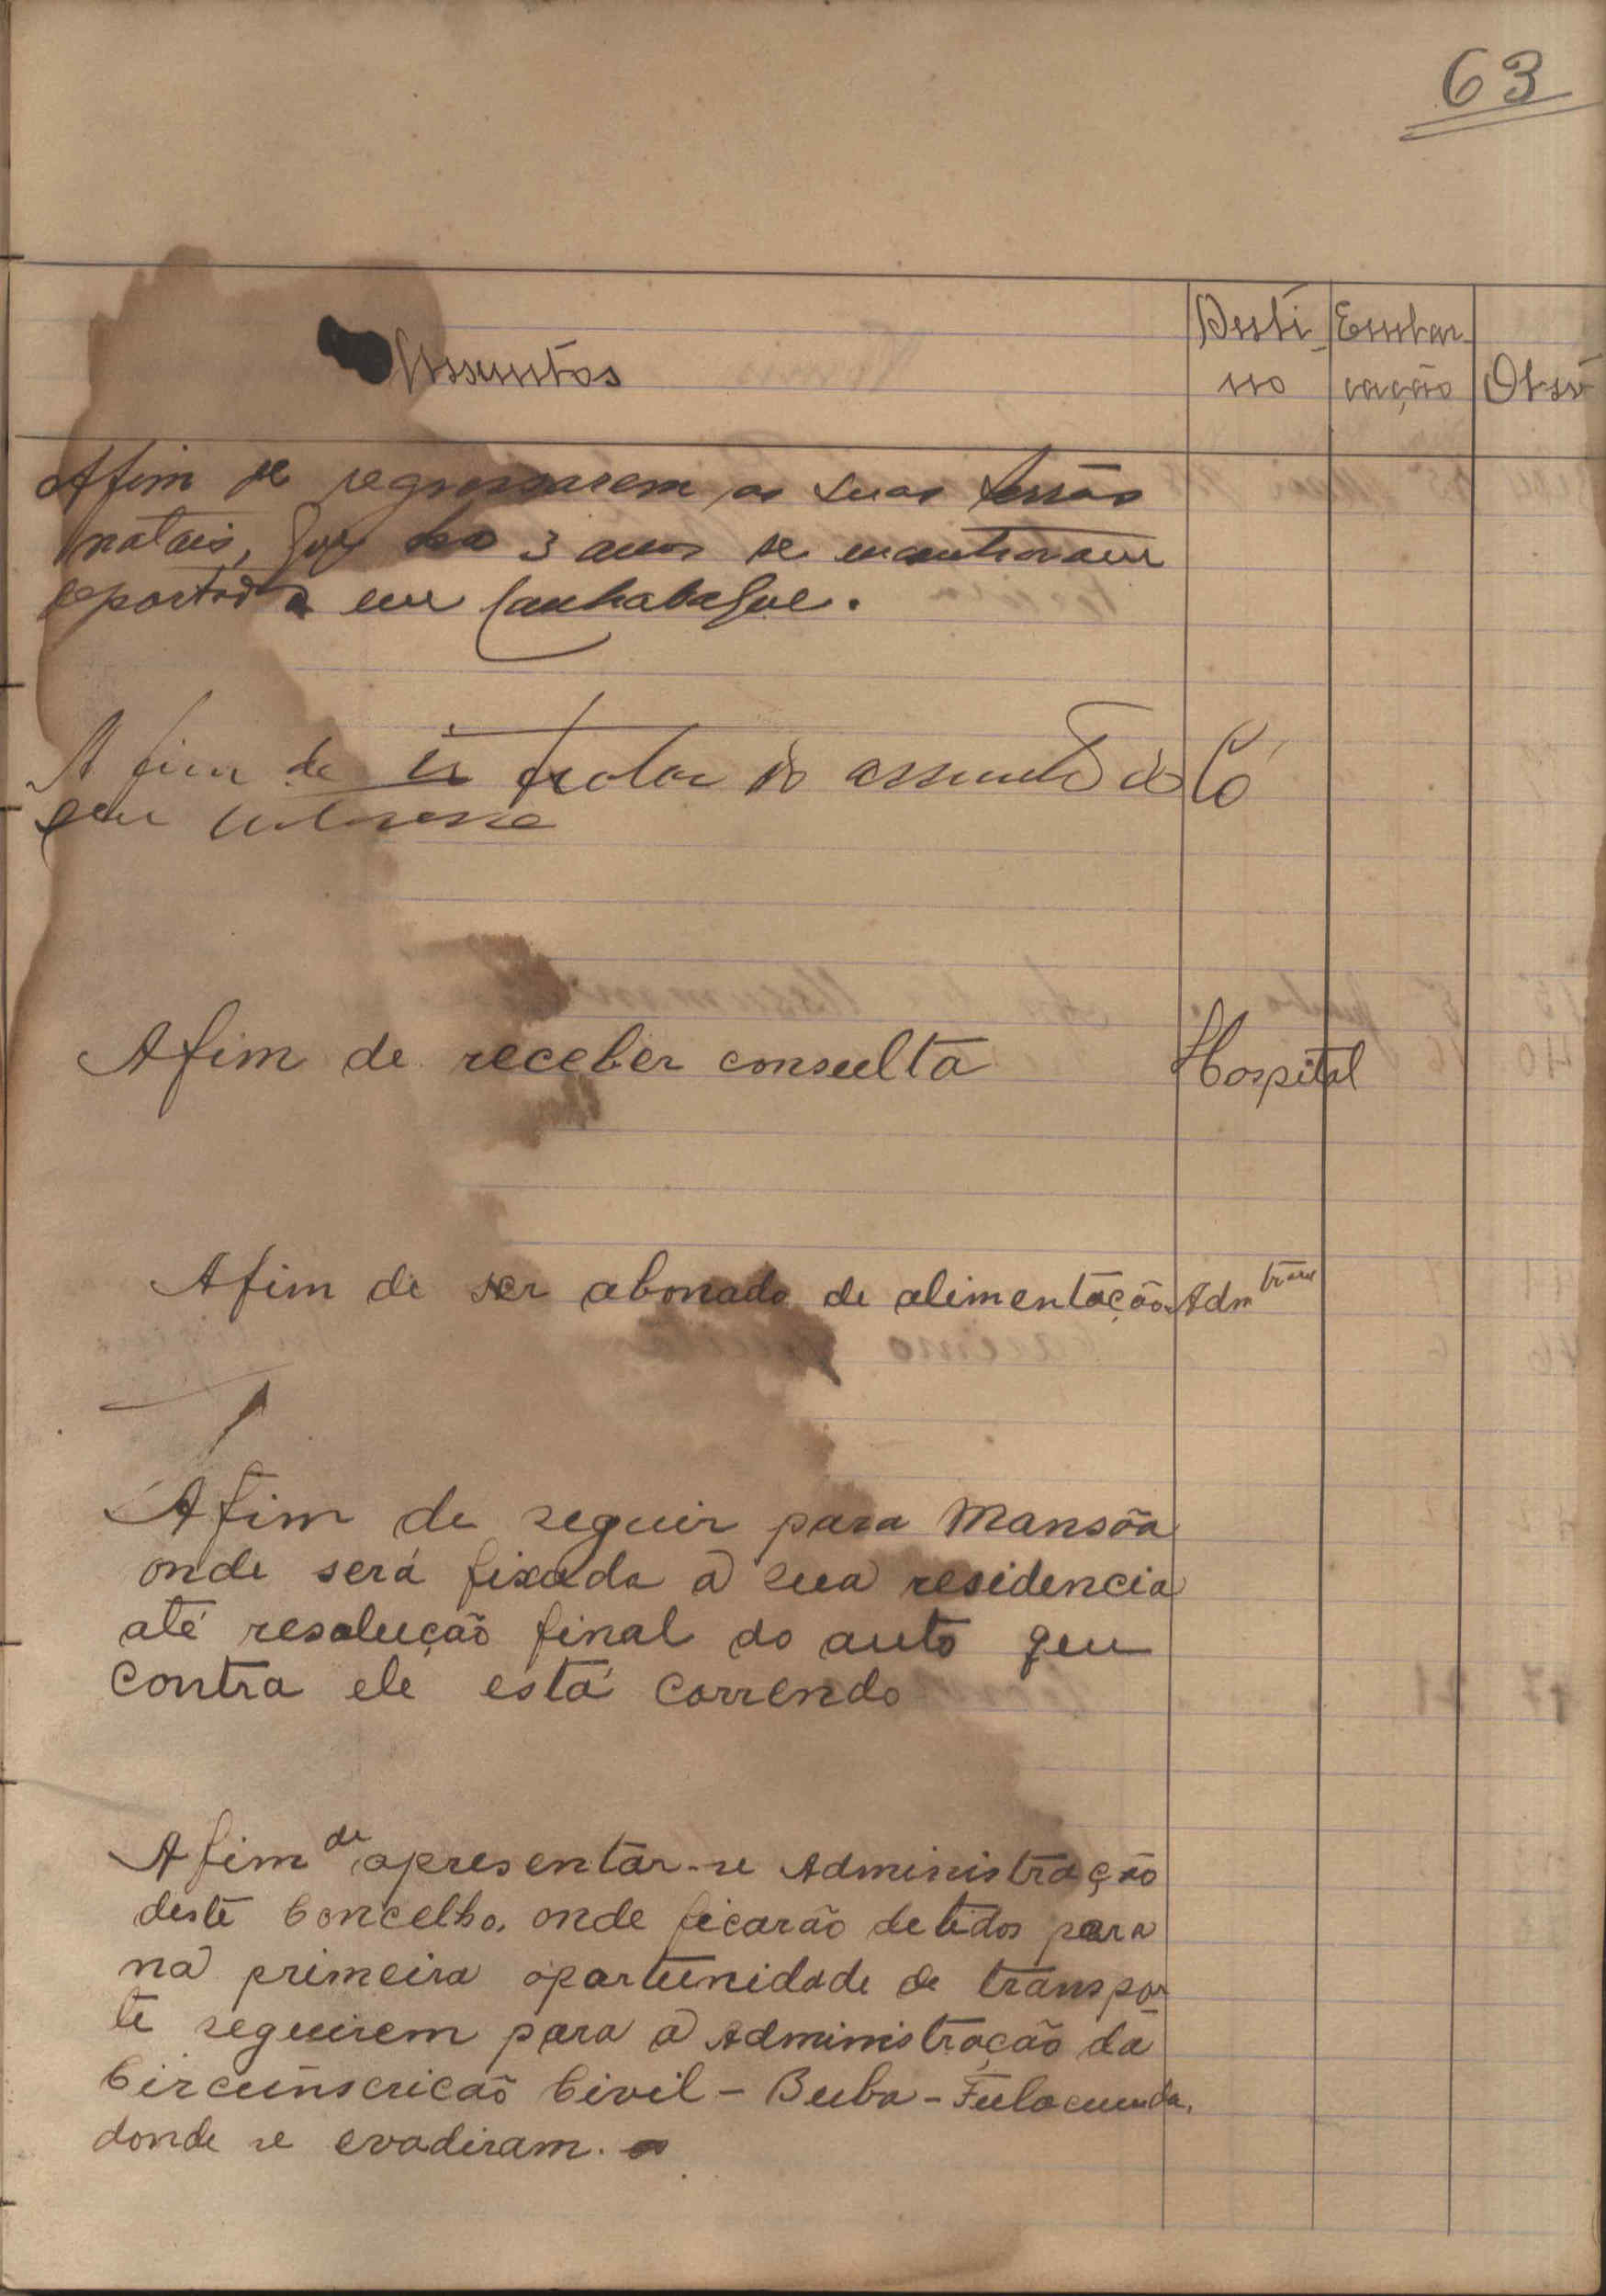 63
Assuntos
Desti-
no
Embar-
cação
Obsv
Afim de regressarem as suas terras
natais, que ha 3 anos se encontravam
deportados em Canhabaque.
A fim de ir tratar do assunto do
seu interesse
Có
Afim de receber consulta
Hospital
Afim de ser abonado de alimentação
Adm
Afim de seguir para Mansôa
onde será fixada a sua residencia
até resolução final do auto que
contra ele está correndo
Afim de apresentar-se Administração
deste Concelho, onde ficarão detidos para
na primeira oportunidade de transpor
te seguirem para a Administração da
Circunscricão Civil - Buba - Fulacunda,
donde se evadiram.